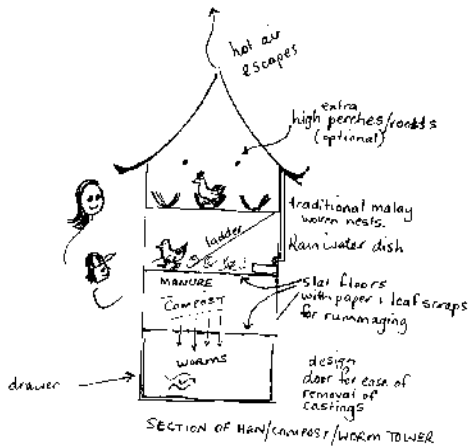 hot air
escapes
extra
high perches/roosts
(optional)
traditional malay
woven nests.
Rainwater dish
ladder
MANURE
COMPOST
slat floors
with paper & leaf scraps
for rummaging
WORMS
drawer
design
door for ease of
removal of
castings
SECTION OF HEN/COMPOST/WORM TOWER